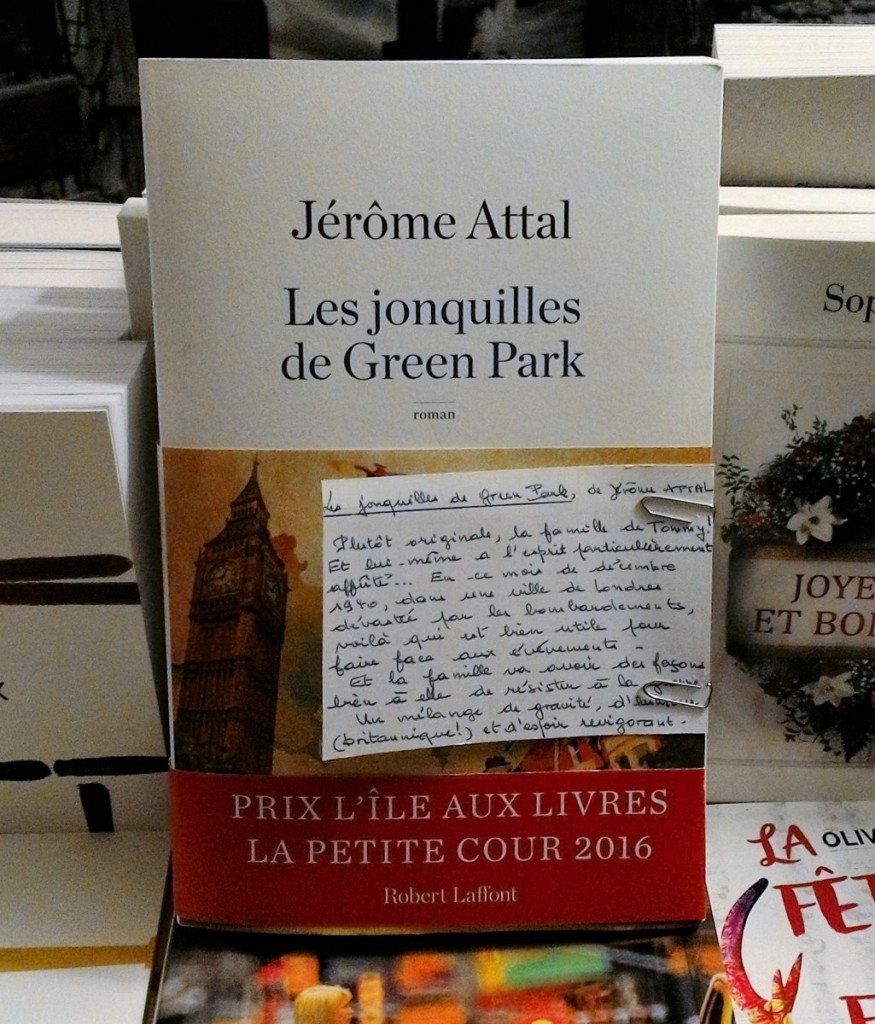 Jérôme Attal
Les jonquilles
de Green Park
roman
Les jonquilles de Green Park, de Jérôme ATTAL
Plutôt originale, la famille de Tommy!
Et lui-même a l'esprit particulièrement
affûté... En ce mois de décembre
1940, dans une ville de Londres
dévastée par les bombardements,
voilà qui est bien utile pour
faire face aux évènements.
Et la famille va avoir des façons
bien à elle de résister à la
Un mélange de gravité,
(britannique!) et d'espoir revigorant.
PRIX L'ÎLE AUX LIVRES
LA PETITE COUR 2016
Robert Laffont
Sop
JOYE
ET BO
LA OLIV
FÊT